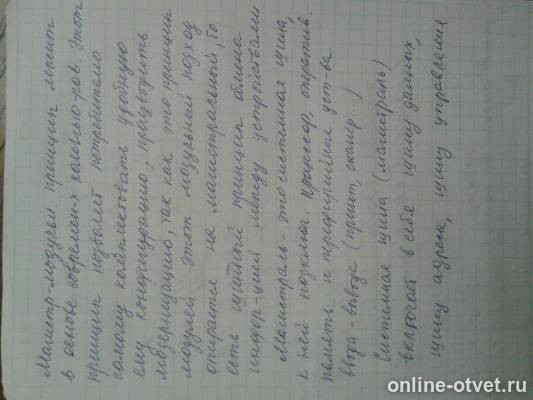 Магистр-модульн принцип лежит
в основе современ-х компью-ров. Этот
принцип позволяет потребителю
самому комплектовать удобную
ему конфигурацию, производить
модернизацию, так как это принцип
модулей этот модульный подход
опирается на магистральный, то
есть шинный принцип обмена
информ-цией между устройствами
Магистраль - это системная шина,
к ней подключ. процессор, оператив.
память и периферийные уст-ва
ввода-вывода (принт, сканер..)
Системная шина (магистраль)
включает в себя шину данных,
шину адреса, шину управления
online-otvet.ru